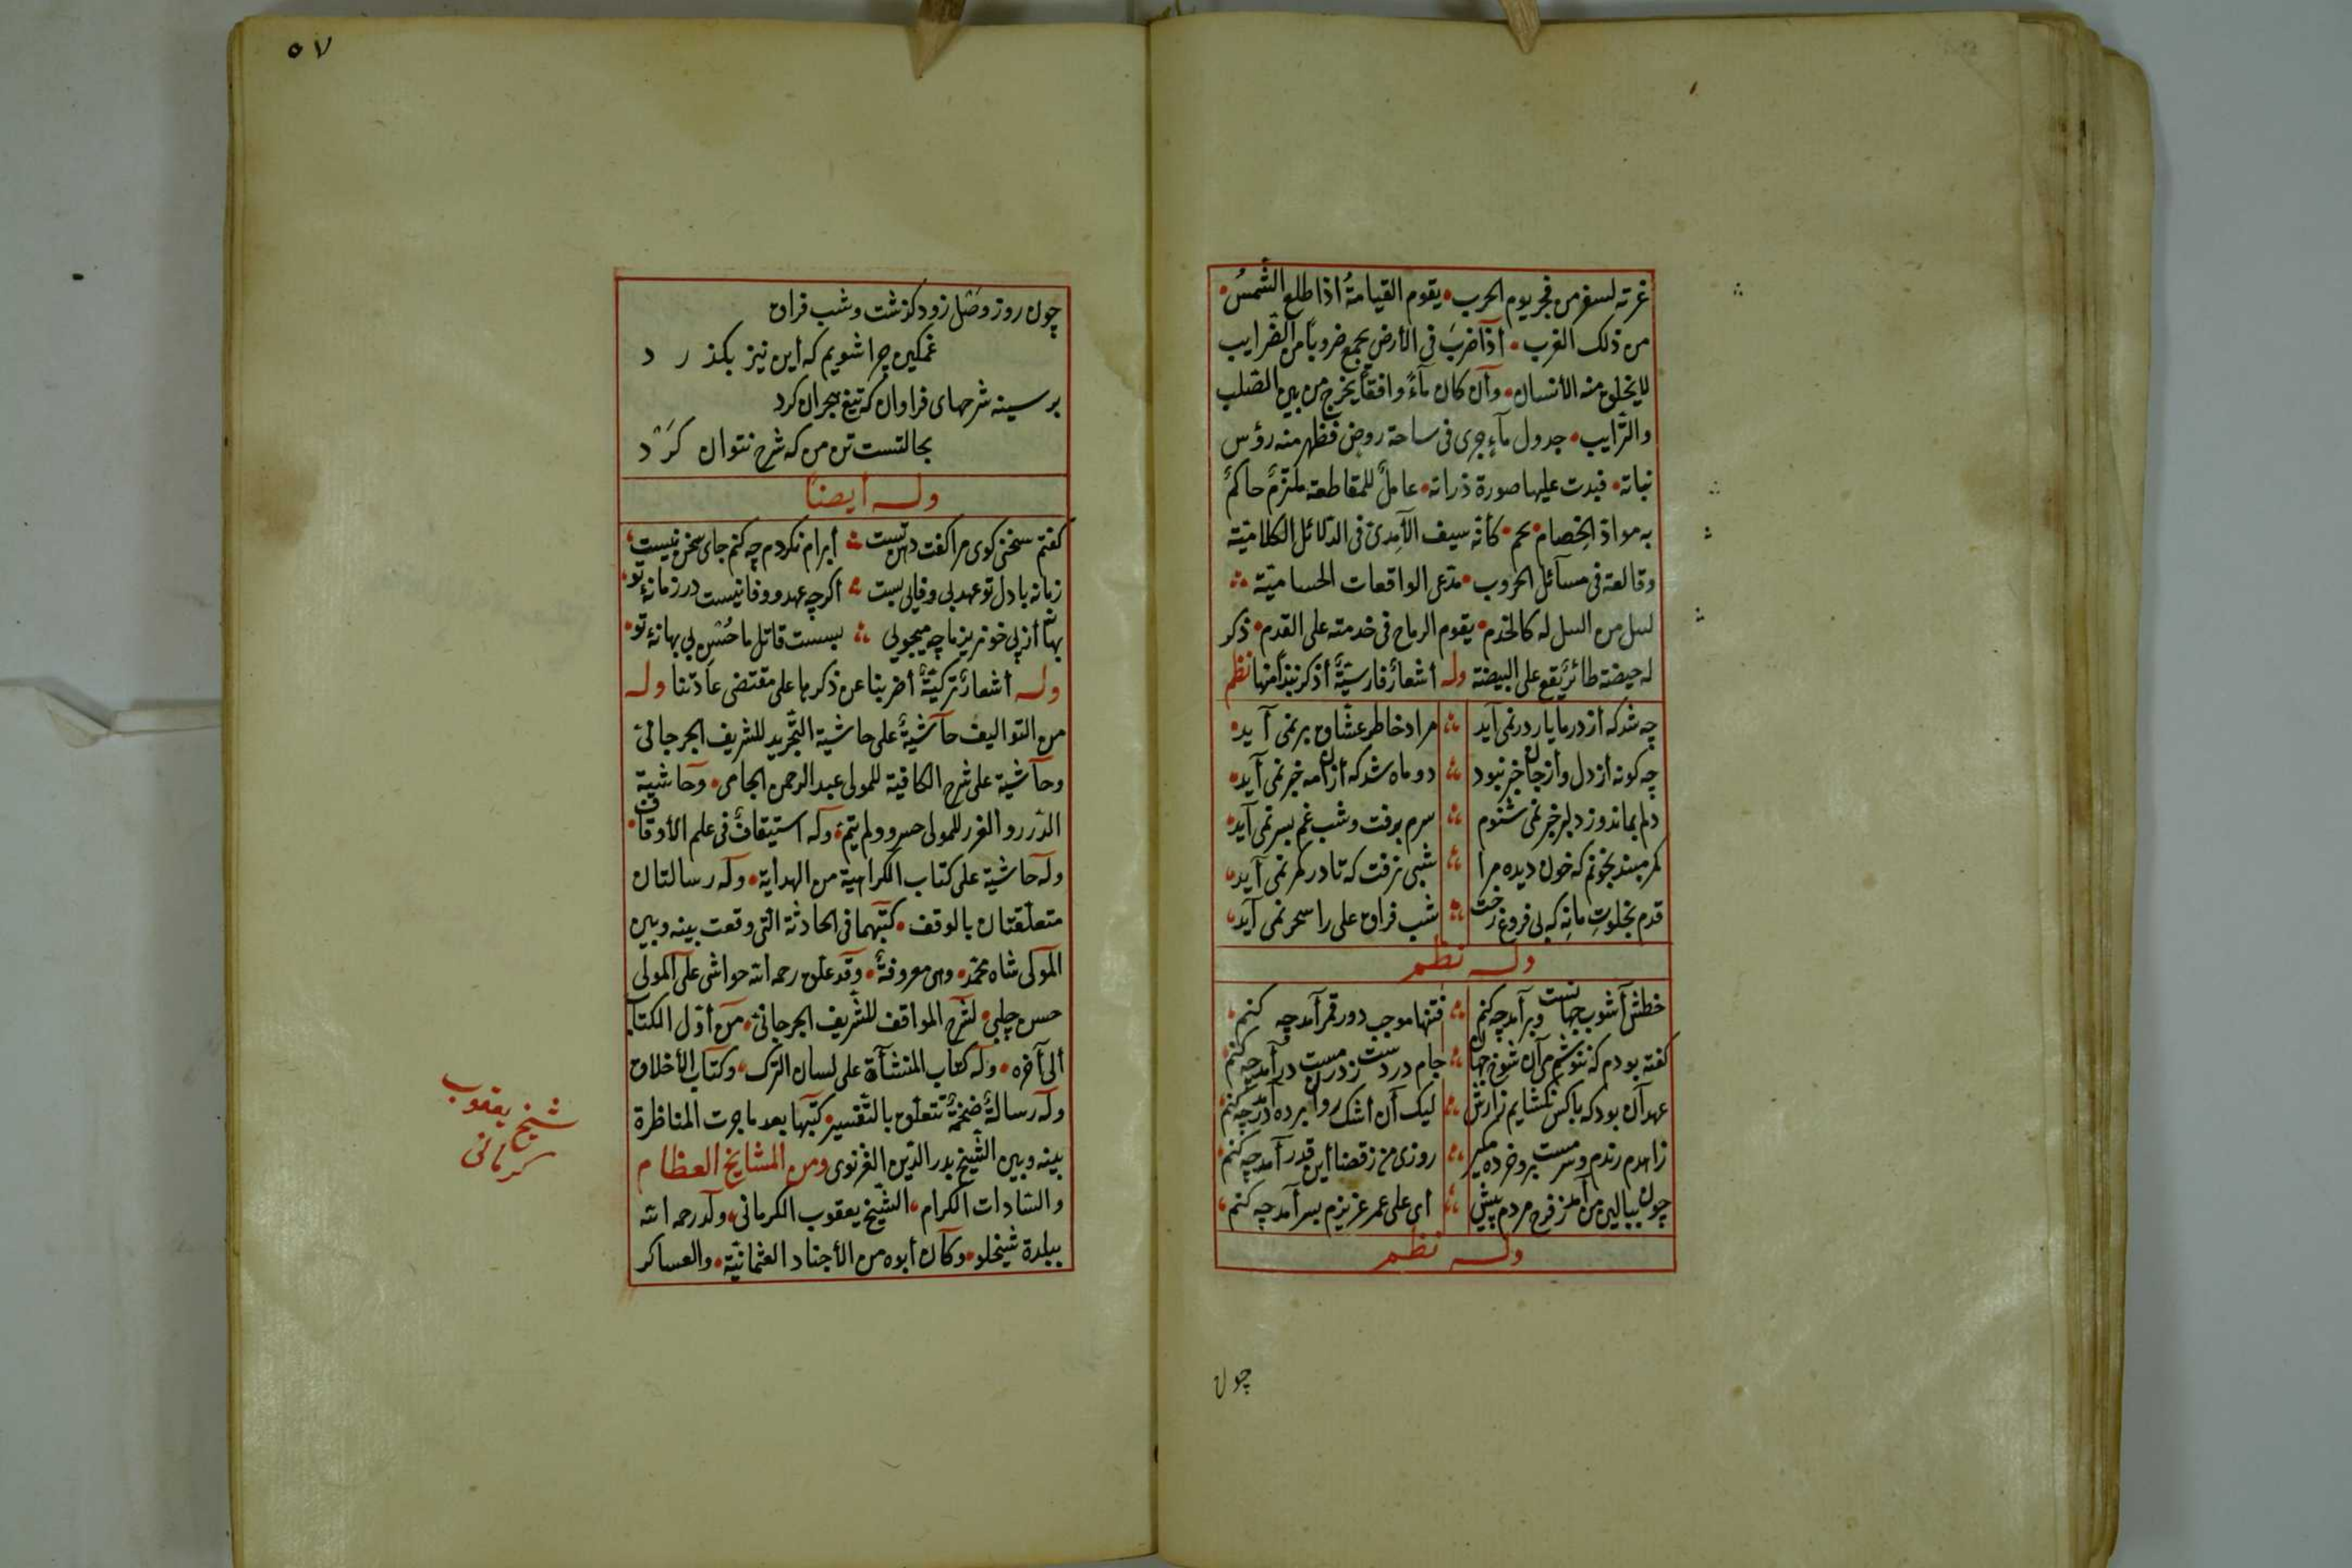 غرته لسفر من فجر يوم الحرب • يقوم القيامة اذا طلع الشمس •
من ذلك الغرب • اذا ضرب فى الأرض يجمع ضروبا من الضرايب
لا يخلق منه الأنسان • وان كان مآءً وافقا يخرج من بين الصلب
والترايب • جدول مآء جرى فى ساحة روض فظهر منه رؤس
نباته • فبدت عليها صورة ذراته • عامل للمقاطعة ملتزم حاكم
به مواد الخصام • كأنه سيف الآمدى فى الدلائل الكلامية
وقالعة فى مسآئل الحروب • مدعى الواقعات الحسامية
له كالخدم • يقوم الرماح فى خدمته على القدم • ذكر
له حيضة طائر يقع على البيضة وله أشعار فارسية أذكر نبذا منها نظم
چه شد كه از در ما يار در نمى آيد مراد خاطر عشاق بر نمى آيد
چه كونه از دل و از جان خبر نبود دو ماه شد كه ازان مه خبر نمى آيد
دلم بماند وز دلبر خبر نمى شنوم سرم برفت وشب غم بسر نمى آيد
كمر مبند بخونم كه خون ديده مرا شبى نرفت كه تا در كمر نمى آيد
قدم بخلوت ما نه كه بى فروغ رخت شب فراق على را سحر نمى آيد
وله نظم
خطش آشوب جهانست وبر آمد چه كنم فتنها موجب دور قمر آمد چه كنم
كفته بودم كه ننوشم مى آن شوخ جهان جام در دست ز در مست در آمد چه كنم
عهد آن بود كه با كس نكشايم رازش ليك آن اشك روان پرده در آمد چه كنم
زاهدم رندم وسرمست برو خرده مكير روزى من ز قضا اين قدر آمد چه كنم
چون ببالين من آمد ز فرح مردم پيش اى على عمر عزيزم بسر آمد چه كنم
وله نظم
چون
٥٧
چون روز وصل زود كذشت وشب فراق
غمكين چرا شويم كه اين نيز بكذرد
بر سينه شرحهاى فراوان كه تيغ هجران كرد
بحالتست تن من كه شرح نتوان كرد
وله أيضا
كفتم سخنى كوى مرا كفت دهن نيست أبرام نكردم چه كنم جاى سخن نيست
زمانه با دل تو عهد بى وفايى بست اكرچه عهد ووفا نيست در زمانۀ تو
بهانه از پى خونريز ما چه ميجويى بسست قاتل ما حسن بى بهانۀ تو
وله أشعار تركية أضربنا عن ذكرها على مقتضى عادتنا وله
من التواليف حآشية على حاشية التجريد للشريف الجرجانى
وحآشية على شرح الكافية للمولى عبد الرحمن الجامى • وحاشية
الدرر والغرر للمولى خسرو ولم يتم • وله استيقاف فى علم الأوقاف
وله حاشية على كتاب الكراهية من الهداية • وله رسالتان
متعلقتان بالوقف • كتبهما فى الحادثة التى وقعت بينه وبين
المولى شاه محمد • وهى معروفة • وقد علق رحمه الله حواشى على المولى
حسن چلبى • لشرح المواقف للشريف الجرجانى • من أول الكتاب
الى آخره • وله كتاب المنشآة على لسان الترك • وكتاب الأخلاق
وله رسالة ضخمة تتعلق بالتفسير • كتبها بعد ما جرت المناظرة
بينه وبين الشيخ بدر الدين الغزنوى ومن المشايخ العظام
والسادات الكرام • الشيخ يعقوب الكرمانى • ولد رحمه الله
ببلدة شيخلو • وكان أبوه من الأجناد العثمانية • والعساكر
شيخ يعقوب
كرمانى